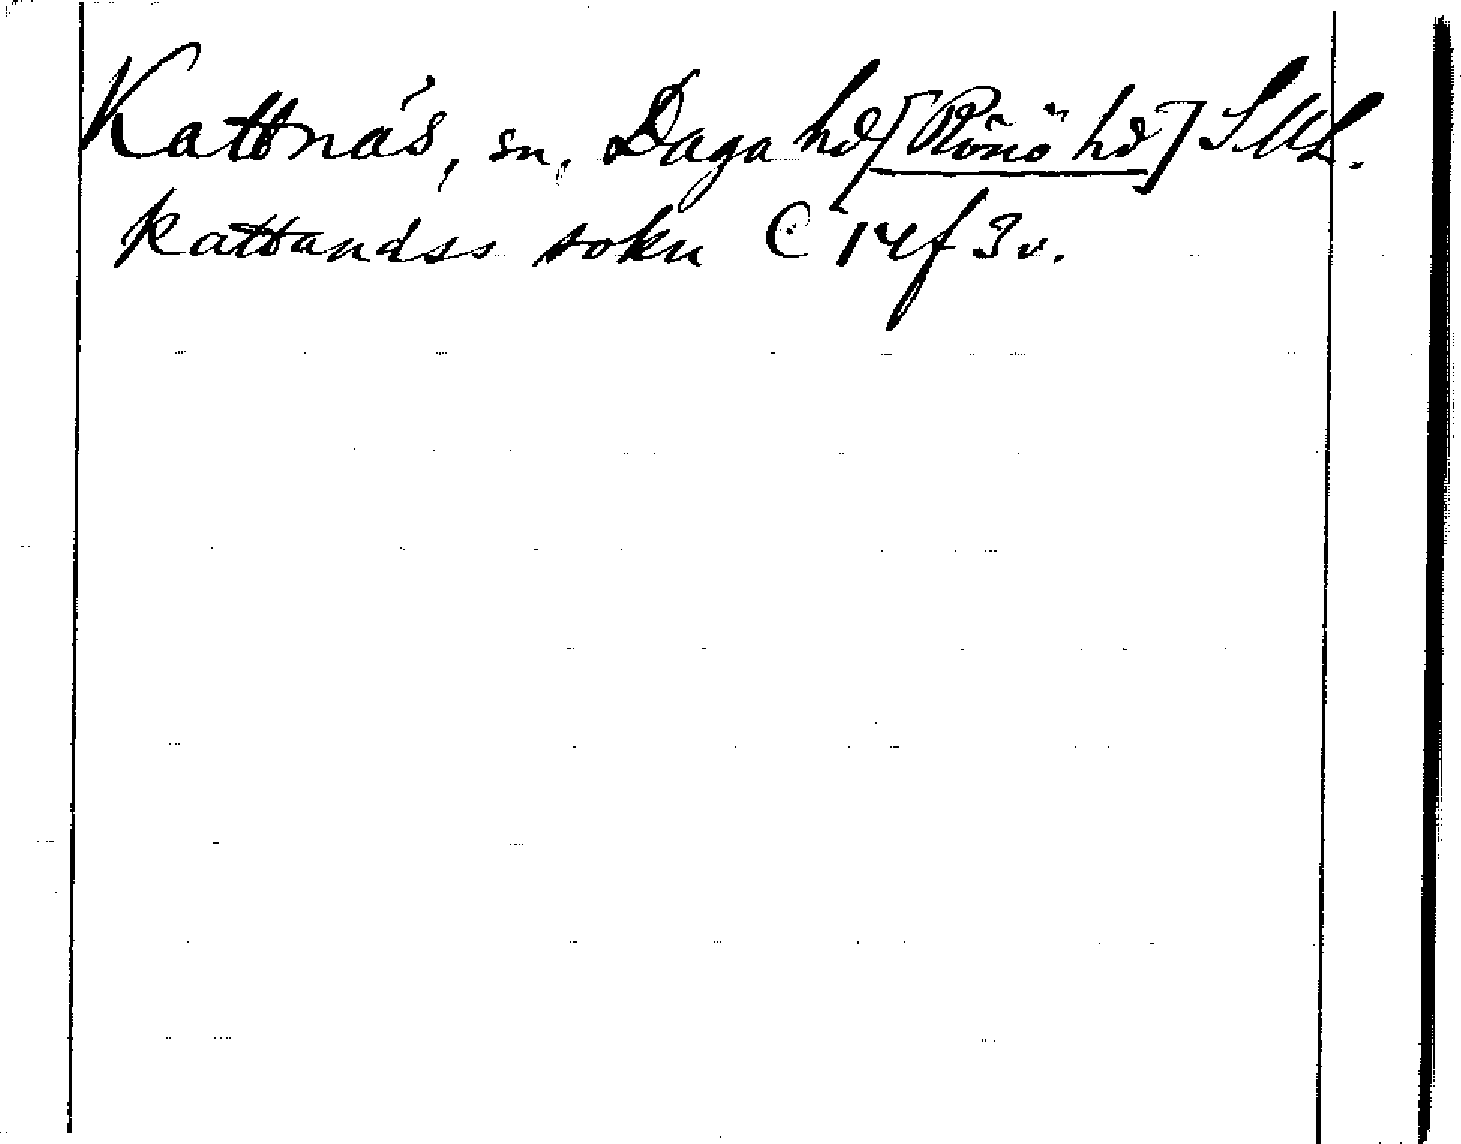 Kattnäs, sn, Daga hd [Rönö hd] Sdl.
kattanäss sokn C 14 f 3 v.